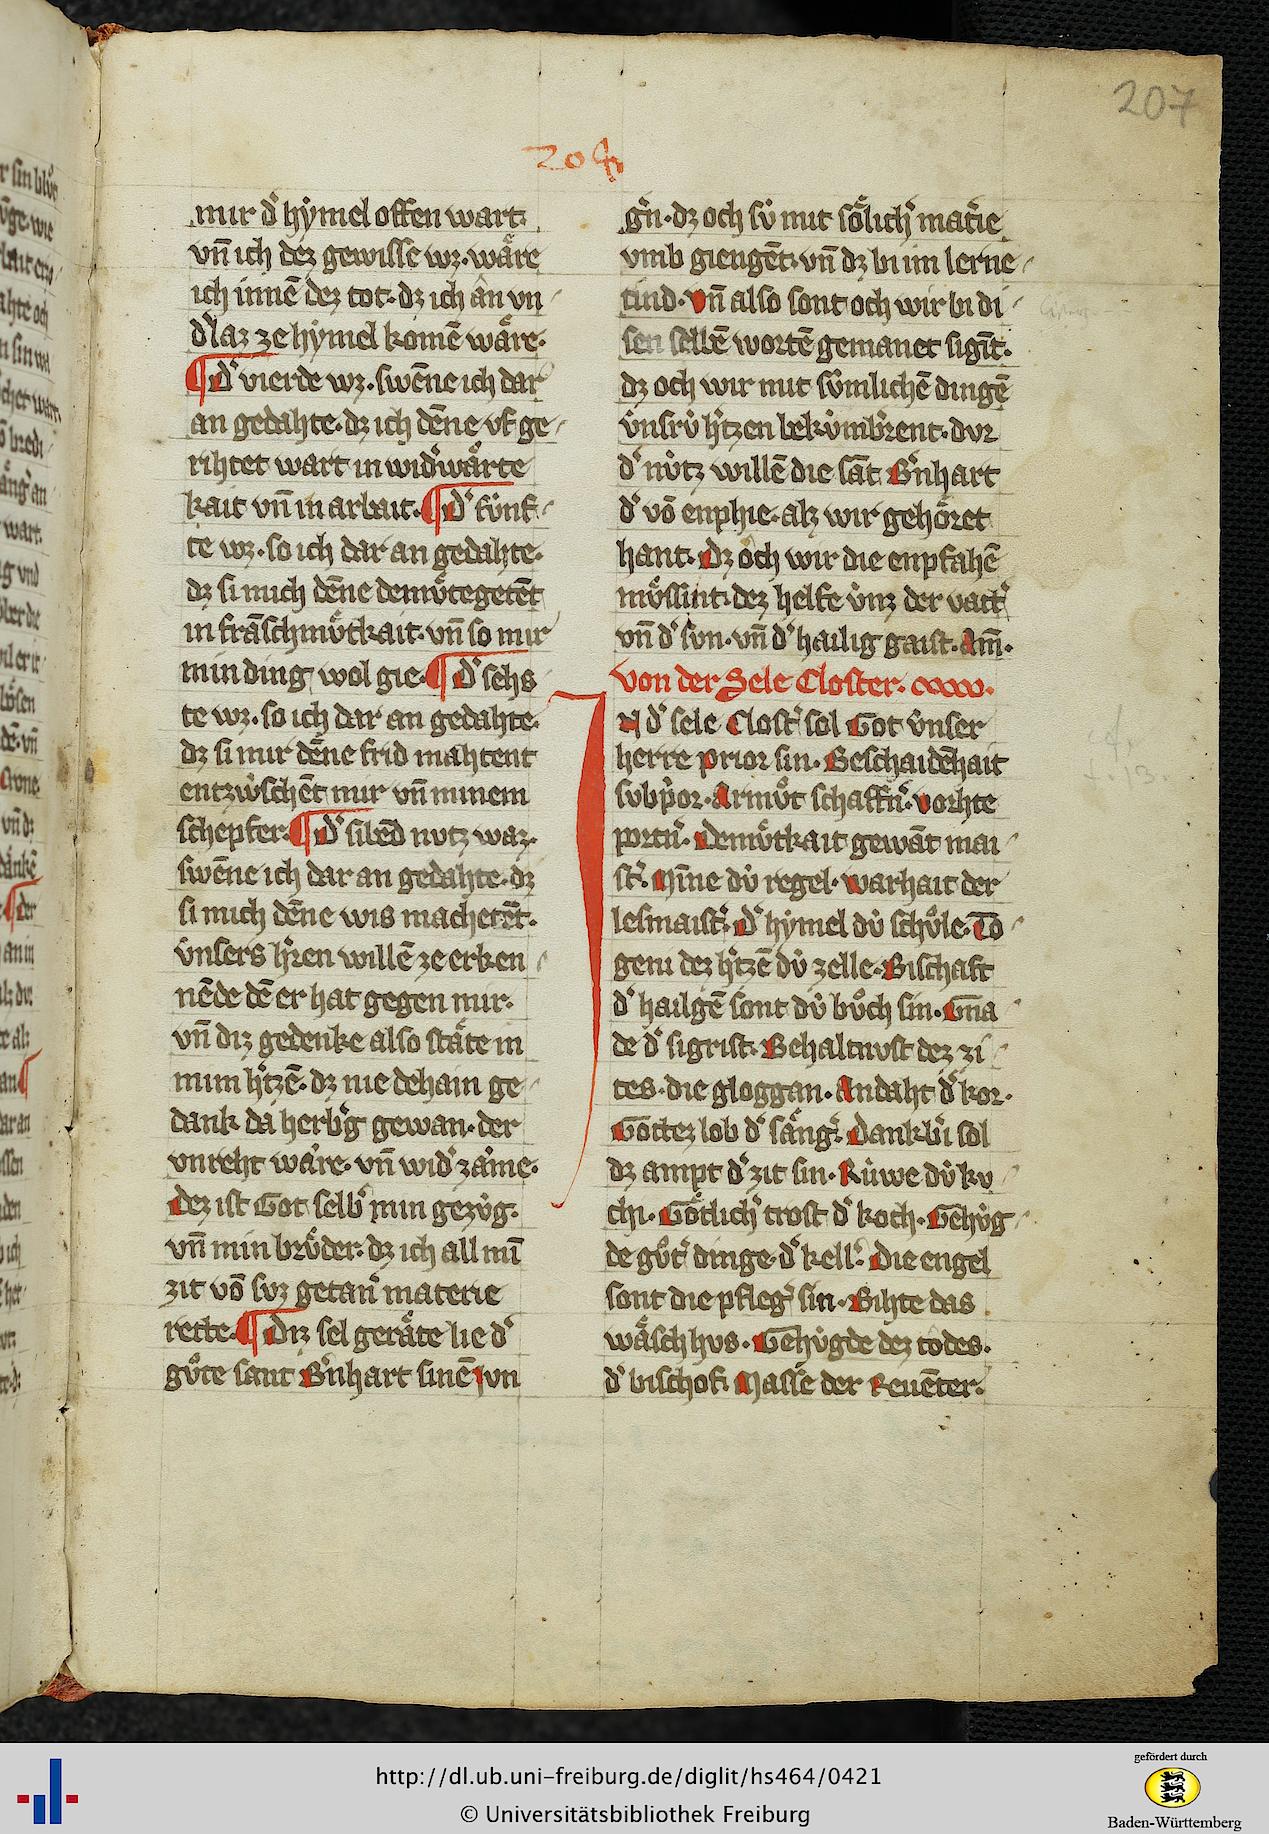 207
204
mir d͛ hẏmel offen wart.
vn̄ ich dez gewisse wz. wåre
ich innē dez tot. dz ich ân vn
d͛laz ze hẏmel komē wåre.
¶ D͛ vierde wz. swēne ich dar
an gedahte. dz ich dēne vf ge
rihtet wart in wid͛wårte
kait vn̄ in arbait. ¶ D͛ fúnf
te wz. so ich dar an gedahte.
dz si mich dēne demv̊tegetēt
in frāschmv̊tkait. vn̄ so mir
min ding wol gie. ¶ D͛ sehs
te wz. so ich dar an gedahte.
dz si mir dēne frid mahtent
entzẃschēt mir vn̄ minem
schepfer. ¶ D͛ sibēd nvtz waz.
swēne ich dar an gedahte. dz
si mich dēne wis machetēt.
v́nsers h͛ren willē ze erken
nēde dē er hat gegen mir.
vn̄ diz gedenke also ståte in
mim h͛tzē. dz nie dehain ge
dank da herb͛g gewan. der
vnreht wåre. vn̄ wid͛zåme.
Dez ist Got selb͛ min gezv́g.
vn̄ min brv̊der. dz ich all mī
zit vō svz getan͛ materie
rette. ¶ Diz sel geråte lie d͛
gv̊te sant B͛nhart sinē ivn
g͛n. dz och sv́ mit sölich͛ mat͛ie
vmb giengēt. vn̄ dz bi im lerne
tind. Vn̄ also sont och wir bi di
sen selbē wortē gemanet sigīt.
dz och wir mit sv́mlichē dingē
v́nsrv́ h͛tzen bekv́mb͛rent. dvr
d͛ nv́tz willē die sāt B͛nhart
d͛ vō enphie. alz wir gehöret
hant. Dz och wir die enpfahē
mv̊ssint. dez helfe v́nz der vatt͛
vn̄ d͛ svn. vn̄ d͛ hailig gaist. Am̄.
Von der Sele Closter. xxxv.
IN d͛ sele Clost͛ sol Got v́nser
herre prior sin. Beschaidēhait
svbp͛or. Armv̊t schaffn͛. vorhte
portn͛. Demv̊tkait gewāt mai
st͛. Mīne dv́ regel. warhait der
lesmaist͛. D͛ hẏmel dv́ schv̊le. To
geni dez h͛tzē dv́ zelle. Bischaft
d͛ hailgē sont dv́ bv̊ch sin. Gna
de d͛ sigrist. Behaltnvst dez zi
tes. die gloggan. Andaht d͛ kor.
Gottez lob d͛ sång͛. Dankb͛i sol
dz ampt d͛ zit sin. Rúwe dv́ kv
chi. Götlich͛ trost d͛ koch. Gehv́g
de gv̊t͛ dinge. d͛ kell͛. Die engel
sont die pfleg͛ sin. Bihte das
wåschhvs. Gehv́gde dez todes.
d͛ bischof. Masse der Reuēter.
http://dl.ub.uni-freiburg.de/diglit/hs464/0421
© Universitätsbibliothek Freiburg
gefördert durch
Baden-Württemberg